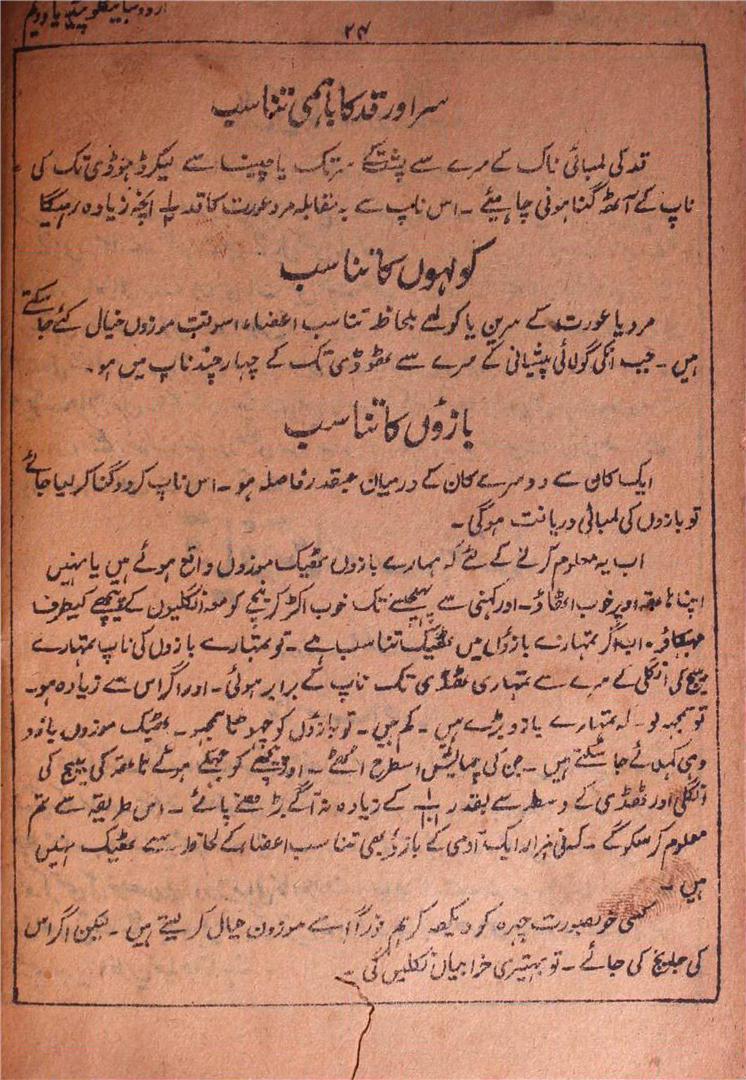 اردو سائیکلوپیڈیا ویدیم
۲۴
سر اور قد کا باہمی تناسب
قد کی لمبائی ناک کے سرے سے پشت کے سر تک یا چیتا سے لیکر ٹھوڈی تک کی
ناپ کے آٹھ گنا ہونی چاہیئے ۔ اس ناپ سے بہ مقابلہ مرد عورت کا قد ۱/۲ انچہ زیادہ رہیگا
کولہوں کا تناسب
مرد یا عورت کے سرین یا کولہے بلحاظ تناسب اعضاء اسوقت موزوں خیال کئے جا سکتے
ہیں ۔ جب انکی گولائی پیشانی کے سرے سے ٹھوڈی تک کے چہار چند ناپ میں ہو ۔
بازؤں کا تناسب
ایک کان سے دوسرے کان کے درمیان جسقدر فاصلہ ہو ۔ اس ناپ کر دوگنا کر لیا جائے
تو بازوں کی لمبائی دریافت ہوگی ۔
اب یہ معلوم کرنے کے لئے کہ ہمارے بازوں ٹھیک موزوں واقع ہوئے ہیں یا نہیں
اپنا ہاتھ اوپر خوب اٹھاؤ ۔ اور کہنی سے پہنچے تک خوب اکڑ کر پنجے کو معہ انگلیوں کے پیچھے کیطرف
جھکاؤ ۔ اب اگر تمہارے بازؤاں میں ٹھیک تناسب ہے ۔ تو تمہارے بازوں کی ناپ تمہارے
بیچ کی انگلی کے سرے سے تمہاری ٹھڈی تک ناپ کے برابر ہوئی ۔ اور اگر اس سے زیادہ ہو ۔
تو سمجہہ لو ۔ کہ تمہارے بازو بڑے ہیں ۔ کم ہیں ۔ تو بازؤں کو چھوٹا سمجہو ۔ ٹھیک موزوں بازو
وہی کہلائے جا سکتے ہیں ۔ جن کی پیمائش اسطرح اترے ۔ اور پیچھے کو جھکے ہوئے ہاتھ کی بیچ کی
انگلی اور ٹھڈی کے وسط سے بقدر کے زیادہ نہ آگے بڑھنے پائے ۔ اس طریقہ سے تم
معلوم کر سکو گے ۔ کہ فی ہزار ایک آدمی کے بازو بھی تناسب اعضا کے لحاظ سے ٹھیک نہیں
ہیں ۔
کسی خوبصورت چہرہ کو دیکھہ کر ہم فوراً اسے موزون خیال کر لیتے ہیں ۔ لیکن اگر اس
کی جانچ کی جائے ۔ تو بہتیری خرابیاں نکلیں گی ۔